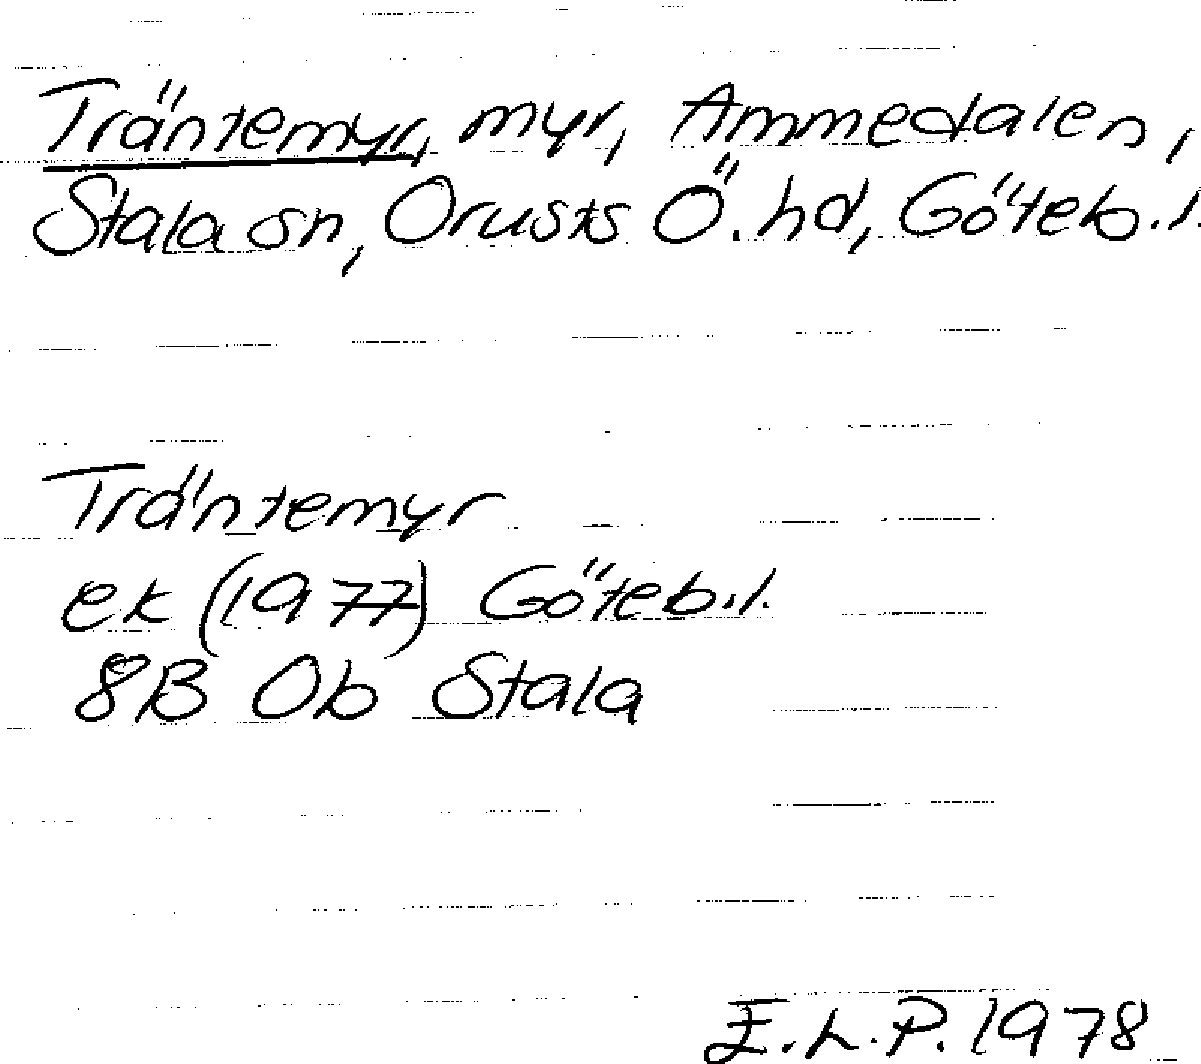 Träntemyr, myr, Ammedalen,
Stala sn, Orusts Ö. hd, Göteb.l.
Träntemyr
ek (1977) Göteb.l.
8B 0b Stala
E.L.P. 1978